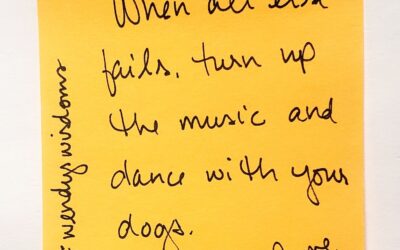 When all else
fails, turn up
the music and
dance with your
dogs.
wendyswisdoms